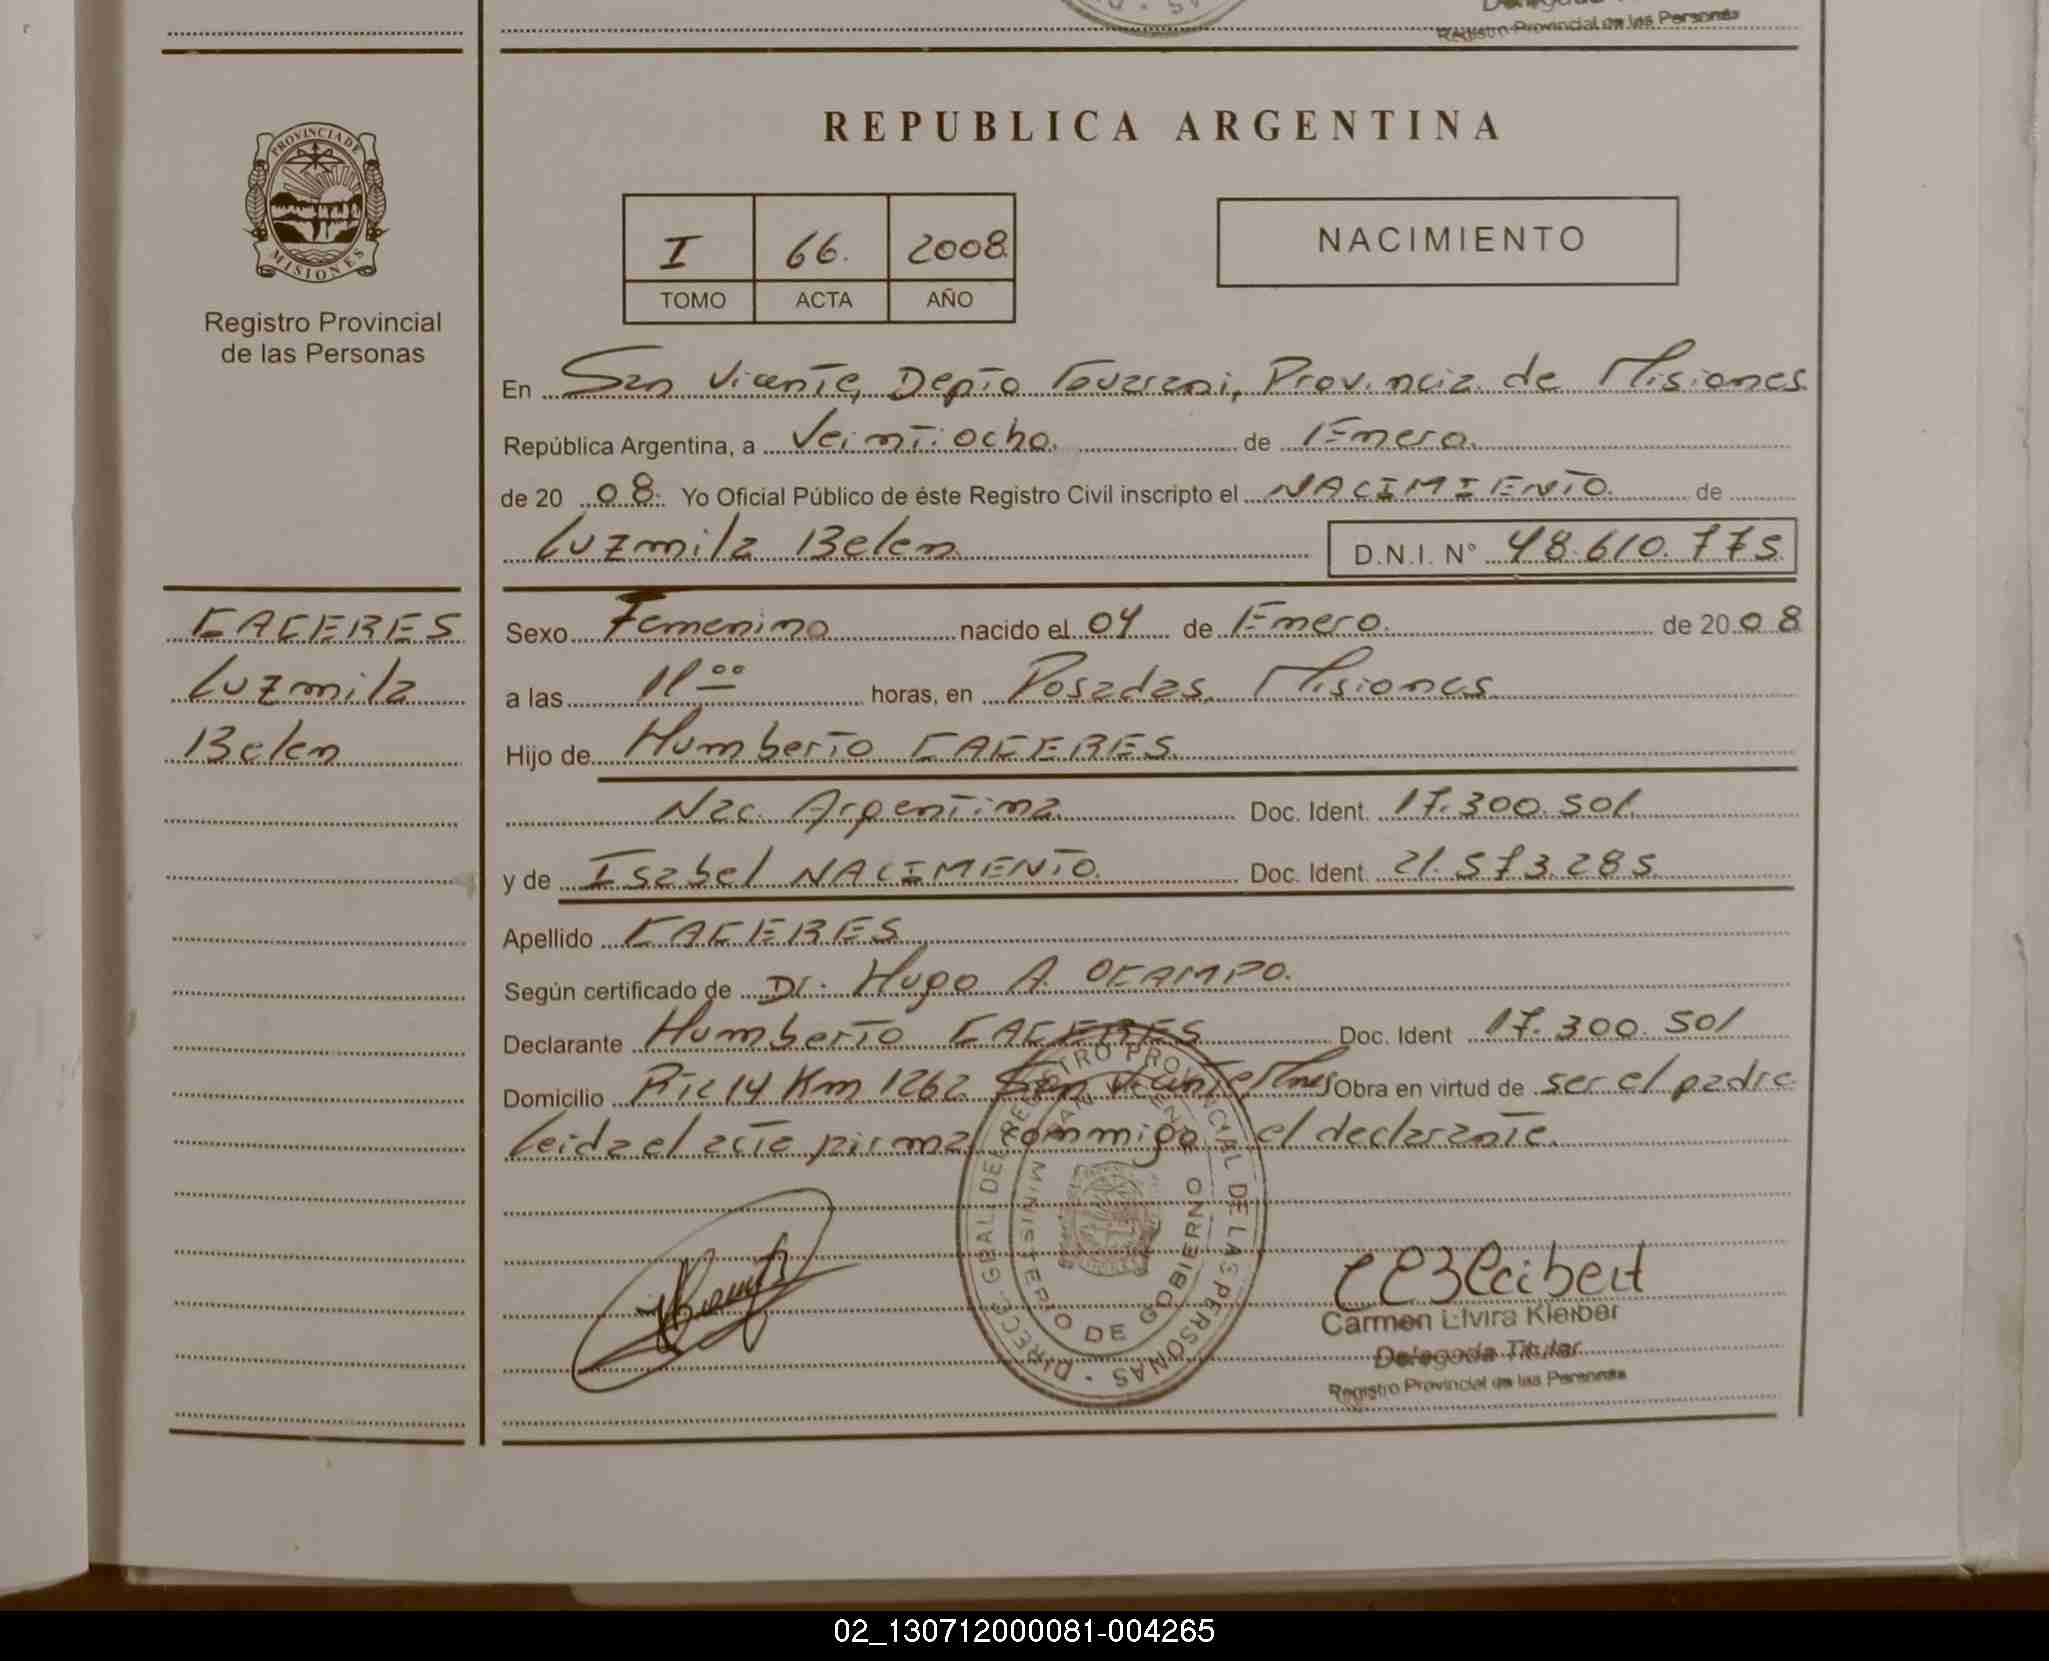 Registro Provincial de las Personas
PROVINCIA DE
MISIONES
Registro Provincial
de las Personas
REPUBLICA ARGENTINA
I 66. 2008
TOMO ACTA AÑO
NACIMIENTO
En San Vicente, Depto Guarani, Provincia de Misiones
República Argentina, a Veintiocho. de Enero.
de 20 08. Yo Oficial Público de éste Registro Civil inscripto el NACIMIENTO. de
Luzmila Belen D.N.I. N° 48.610.775
CACERES
Luzmila
Belen
Sexo Femenino nacido el 04 de Enero. de 20 08
a las 11 00 horas, en Posadas, Misiones
Hijo de Humberto CACERES
Nac. Argentina. Doc. Ident. 17.300.501.
y de Isabel NACIMENTO. Doc. Ident. 21.573.285.
Apellido CACERES
Según certificado de Dr. Hugo A. OCAMPO.
Declarante Humberto CACERES Doc. Ident 17.300.501
Domicilio Rta 14 Km 1262 San Vicente Mnes Obra en virtud de ser el padre
Leida el acta firma conmigo el declarante.
DIRECC. GRAL. DEL REGISTRO PROVINCIAL DE LAS PERSONAS
SAN VICENTE
MINISTERIO DE GOBIERNO
Carmen Elvira Kleiber
Delegada Titular
Registro Provincial de las Personas
02_130712000081-004265